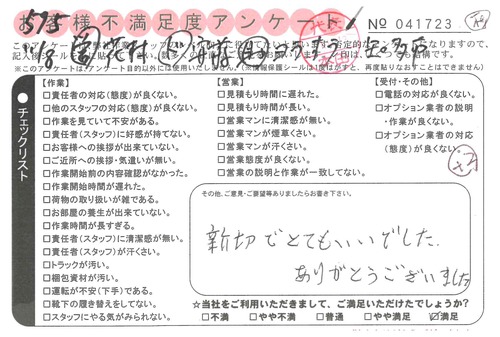 お客様不満足度アンケート
№ 041723
575
【作業】
□責任者の対応(態度)が良くない。
□他のスタッフの対応(態度)が良くない。
□作業を見ていて不安がある。
□責任者(スタッフ)に好感が持てない。
□お客様への挨拶が出来ていない。
□ご近所への挨拶・気遣いが無い。
□作業開始前の内容確認がなかった。
□作業開始時間が遅れた。
□荷物の取り扱いが雑である。
□お部屋の養生が出来ていない。
□作業時間が長すぎる。
□責任者(スタッフ)に清潔感が無い。
□責任者(スタッフ)が汗くさい。
□トラックが汚い。
□梱包資材が汚い。
□運転が不安(下手)である。
□靴下の履き替えをしてない。
□スタッフにやる気がみられない。
【営業】
□見積もり時間に遅れた。
□見積もり時間が長い。
□営業マンに清潔感が無い。
□営業マンが煙草くさい。
□営業マンが汗くさい。
□営業態度が良くない。
□営業の説明と作業が一致してない。
【受付・その他】
□電話の対応が良くない。
□オプション業者の説明
・作業が良くない。
□オプション業者の対応
(態度)が良くない。
チェックリスト
その他、ご意見・ご要望等ありましたらお書き下さい。
親切でとてもいいでした。
ありがとうございました
☆当社をご利用いただきまして、ご満足いただけてしょうか?
□不満 □やや不満 □普通 □やや満足 ☑満足